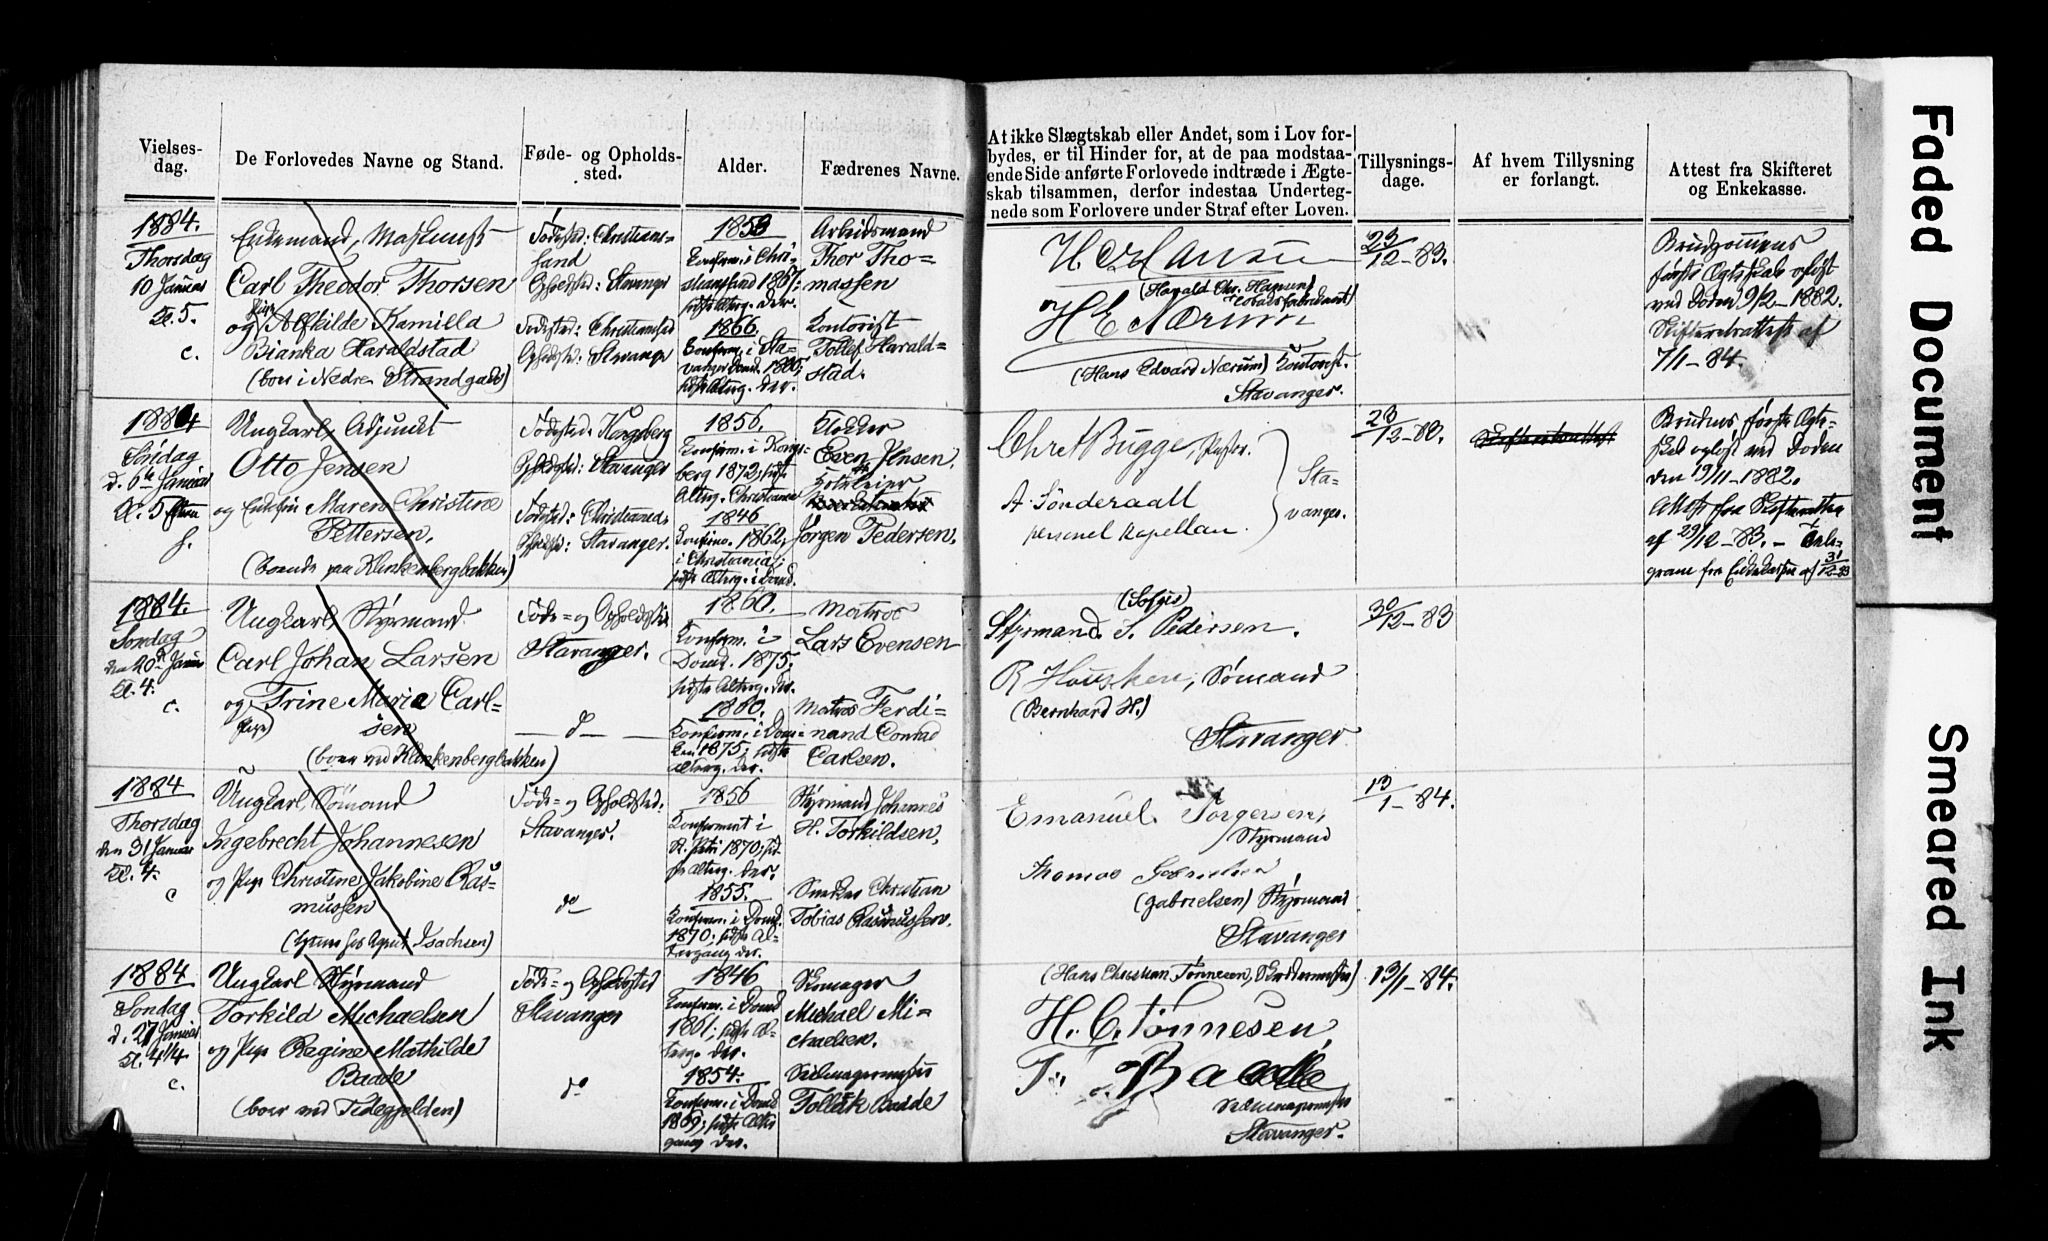 Vielses-
dag.
De Forlovedes Navne og Stand.
Føde- og Opholds-
sted.
Alder.
Fædrenes Navne.
At ikke Slægtskab eller Andet, som i Lov for-
bydes, er til Hinder for, at de paa modstaa-
ende Side anførte Forlovede indtræde i Ægte-
skab tilsammen, derfor indestaa Underteg-
nede som Forlovere under Straf efter Loven.
Tillysnings-
dage.
Af hvem Tillysning
er forlangt.
Attest fra Skifteret
og Enkekasse.
1884.
Thorsdag
10 Januar
Kl. 5.
c.
Enkemand,
Carl Theodor Thorsen
og Pige Alfhilde Kamilla
Bianka Haraldstad
(boer i Nedre Strandgade)
Fødested: Christians-
sand
Opholdsted: Stavanger
Fødested: Christianssand
Opholdsted: Stavanger
1853
Konfirm. i Chri-
stianssand 1867;
sidste Alterg. der.
1866.
Konfirm. i Sta-
vanger Domk. 1880;
sidste Alterg. der.
Arbeidsmand
Thor Tho-
massen
Kontorist
Tollef Harald-
stad.
H C Hansen
(Harald Chr. Hansen)
H E Nærum
(Hans Edvard Nærum) Kontorist.
Stavanger.
23/12-83.
Brudgommens
første Ægteskab opløst
ved Døden 9/2-1882.
Skifteretsattest af
7/1-84.
1884
Søndag
d. 6te Januar
Kl. 5
f.
Ungkarl, Adjunct
Otto Jensen
og Enkefru Maren Christine
Pettersen.
(boende paa Klinkenbergbakken)
Fødested: Kongsberg
Opholdsted: Stavanger
Fødested: Christiania,
Opholdsted: Stavanger.
1856.
Konfirm. i Kongs-
berg 1872; sidste
Alterg. Christiania
1846
Konfirm. 1862,
i Christiania;
sidste Alterg. i Domk.
Klokker
Even Jensen,
Jørgen Pedersen.
Chr. Bugge, Pastor.
A. Sönderaall
personel Kapellan.
Sta-
vanger.
23/12-83.
Skifteretsattest
Brudens første Ægte-
skab opløst ved Døden
den 19/11-1882.
Attest fra Skifteretten
af 29/12-83. - Tele-
gram fra Enkekassen af 31/12-83
1884.
Søndag
den 20de Januar
Kl. 4.
c.
Ungkarl, Styrmand
Carl Johan Larsen
og Trine Maria Carl-
(Pige) sen
(boer ved Klinkenbergbakken)
Føde- og Opholdsted:
Stavanger.
— do —
1860.
Konfirm. i
Domk. 1875;
sidste Alterg. der.
1860.
Konfirm. i Dom-
ken 1875; sidste
Alterg. der.
Matros
Lars Evensen
Matros Ferdi-
nand Conrad
Carlsen.
Styrmand S. Pedersen.
R Housken, Sømand
(Bernhard H.)
Stavanger
30/12-83
1884
Thorsdag
den 31 Januar
Kl. 4.
c
Ungkarl, Sømand
Ingebrecht Johannesen
og Pige Christine Jakobine Ras-
mussen
(hjemme hos Agent Isachsen)
Føde- og Opholdsted:
Stavanger.
do
1856
Konfirment i
St. Petri 1870; sid-
ste Alterg. der.
1855.
Konfirm. i Domk.
1870; sidste Al-
tergang der.
Styrmand Johannes
H. Torkildsen,
Snedker Christian
Tobias Rasmussen.
Emanuel Torgersen,
Styrmand
Thomas Gabrielsen
(Gabrielsen) Styrmand
Stavanger
13/1-84.
1884
Søndag
d. 27 Januar
Kl. 4¼
c.
Ungkarl Styrmand
Torkild Michaelsen
og Pige Regine Mathilde
Badde
(boer ved Tidegjelden)
Føde- og Opholdsted
Stavanger
do
1846
Konfirm. i Domk
1861; sidste Al-
terg. der.
1854.
Konfirm. i Domk
1869; sidste Alter-
gang der.
Skomager
Michael Mi-
chaelsen.
Seilmagermester
Tollak Badde
(Hans Christian Tønnesen,
H. C. Tönnesen,
T. Badde
Seilmagermester
Stavanger.
13/1-84.
Faded Document
Smeared Ink